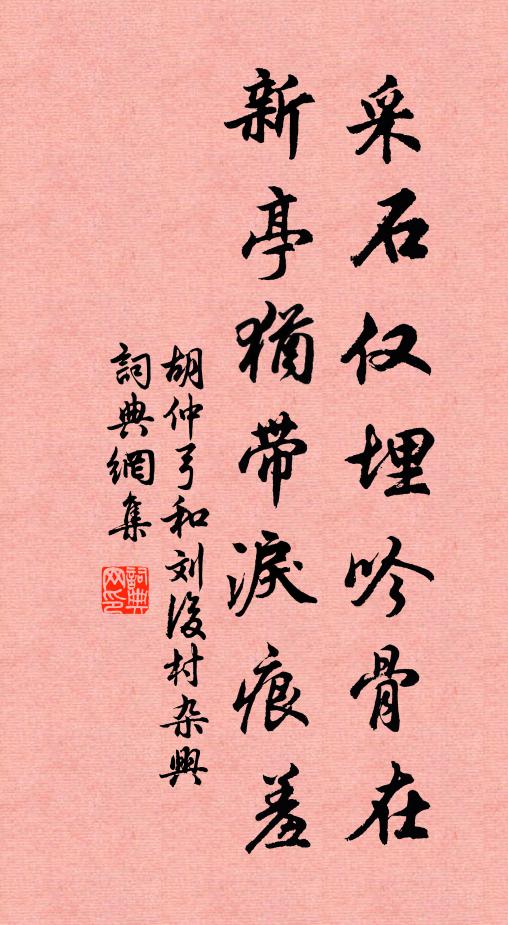 采石仅埋吟骨在
新亭犹带淚痕羞
胡仲弓和刘後村杂興
詞典網集
詞典网印